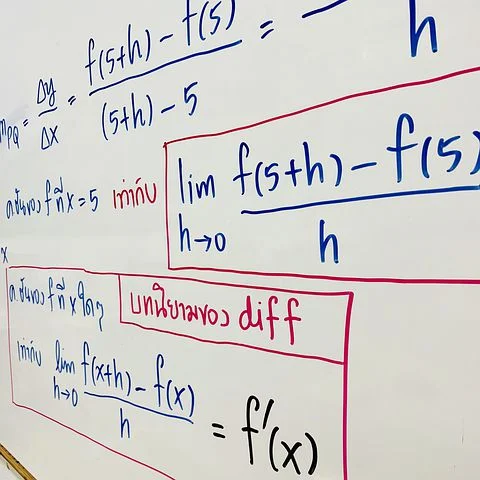 m_PQ = Δy/Δx = f(5+h) – f(5) / (5+h) – 5 = / h
ค.ชันของ f ที่ x = 5 เท่ากับ lim h→0 f(5+h) – f(5) / h
x
ค.ชันของ f ที่ x ใดๆ
บทนิยามของ diff
เท่ากับ lim h→0 f(x+h) – f(x) / h = f'(x)